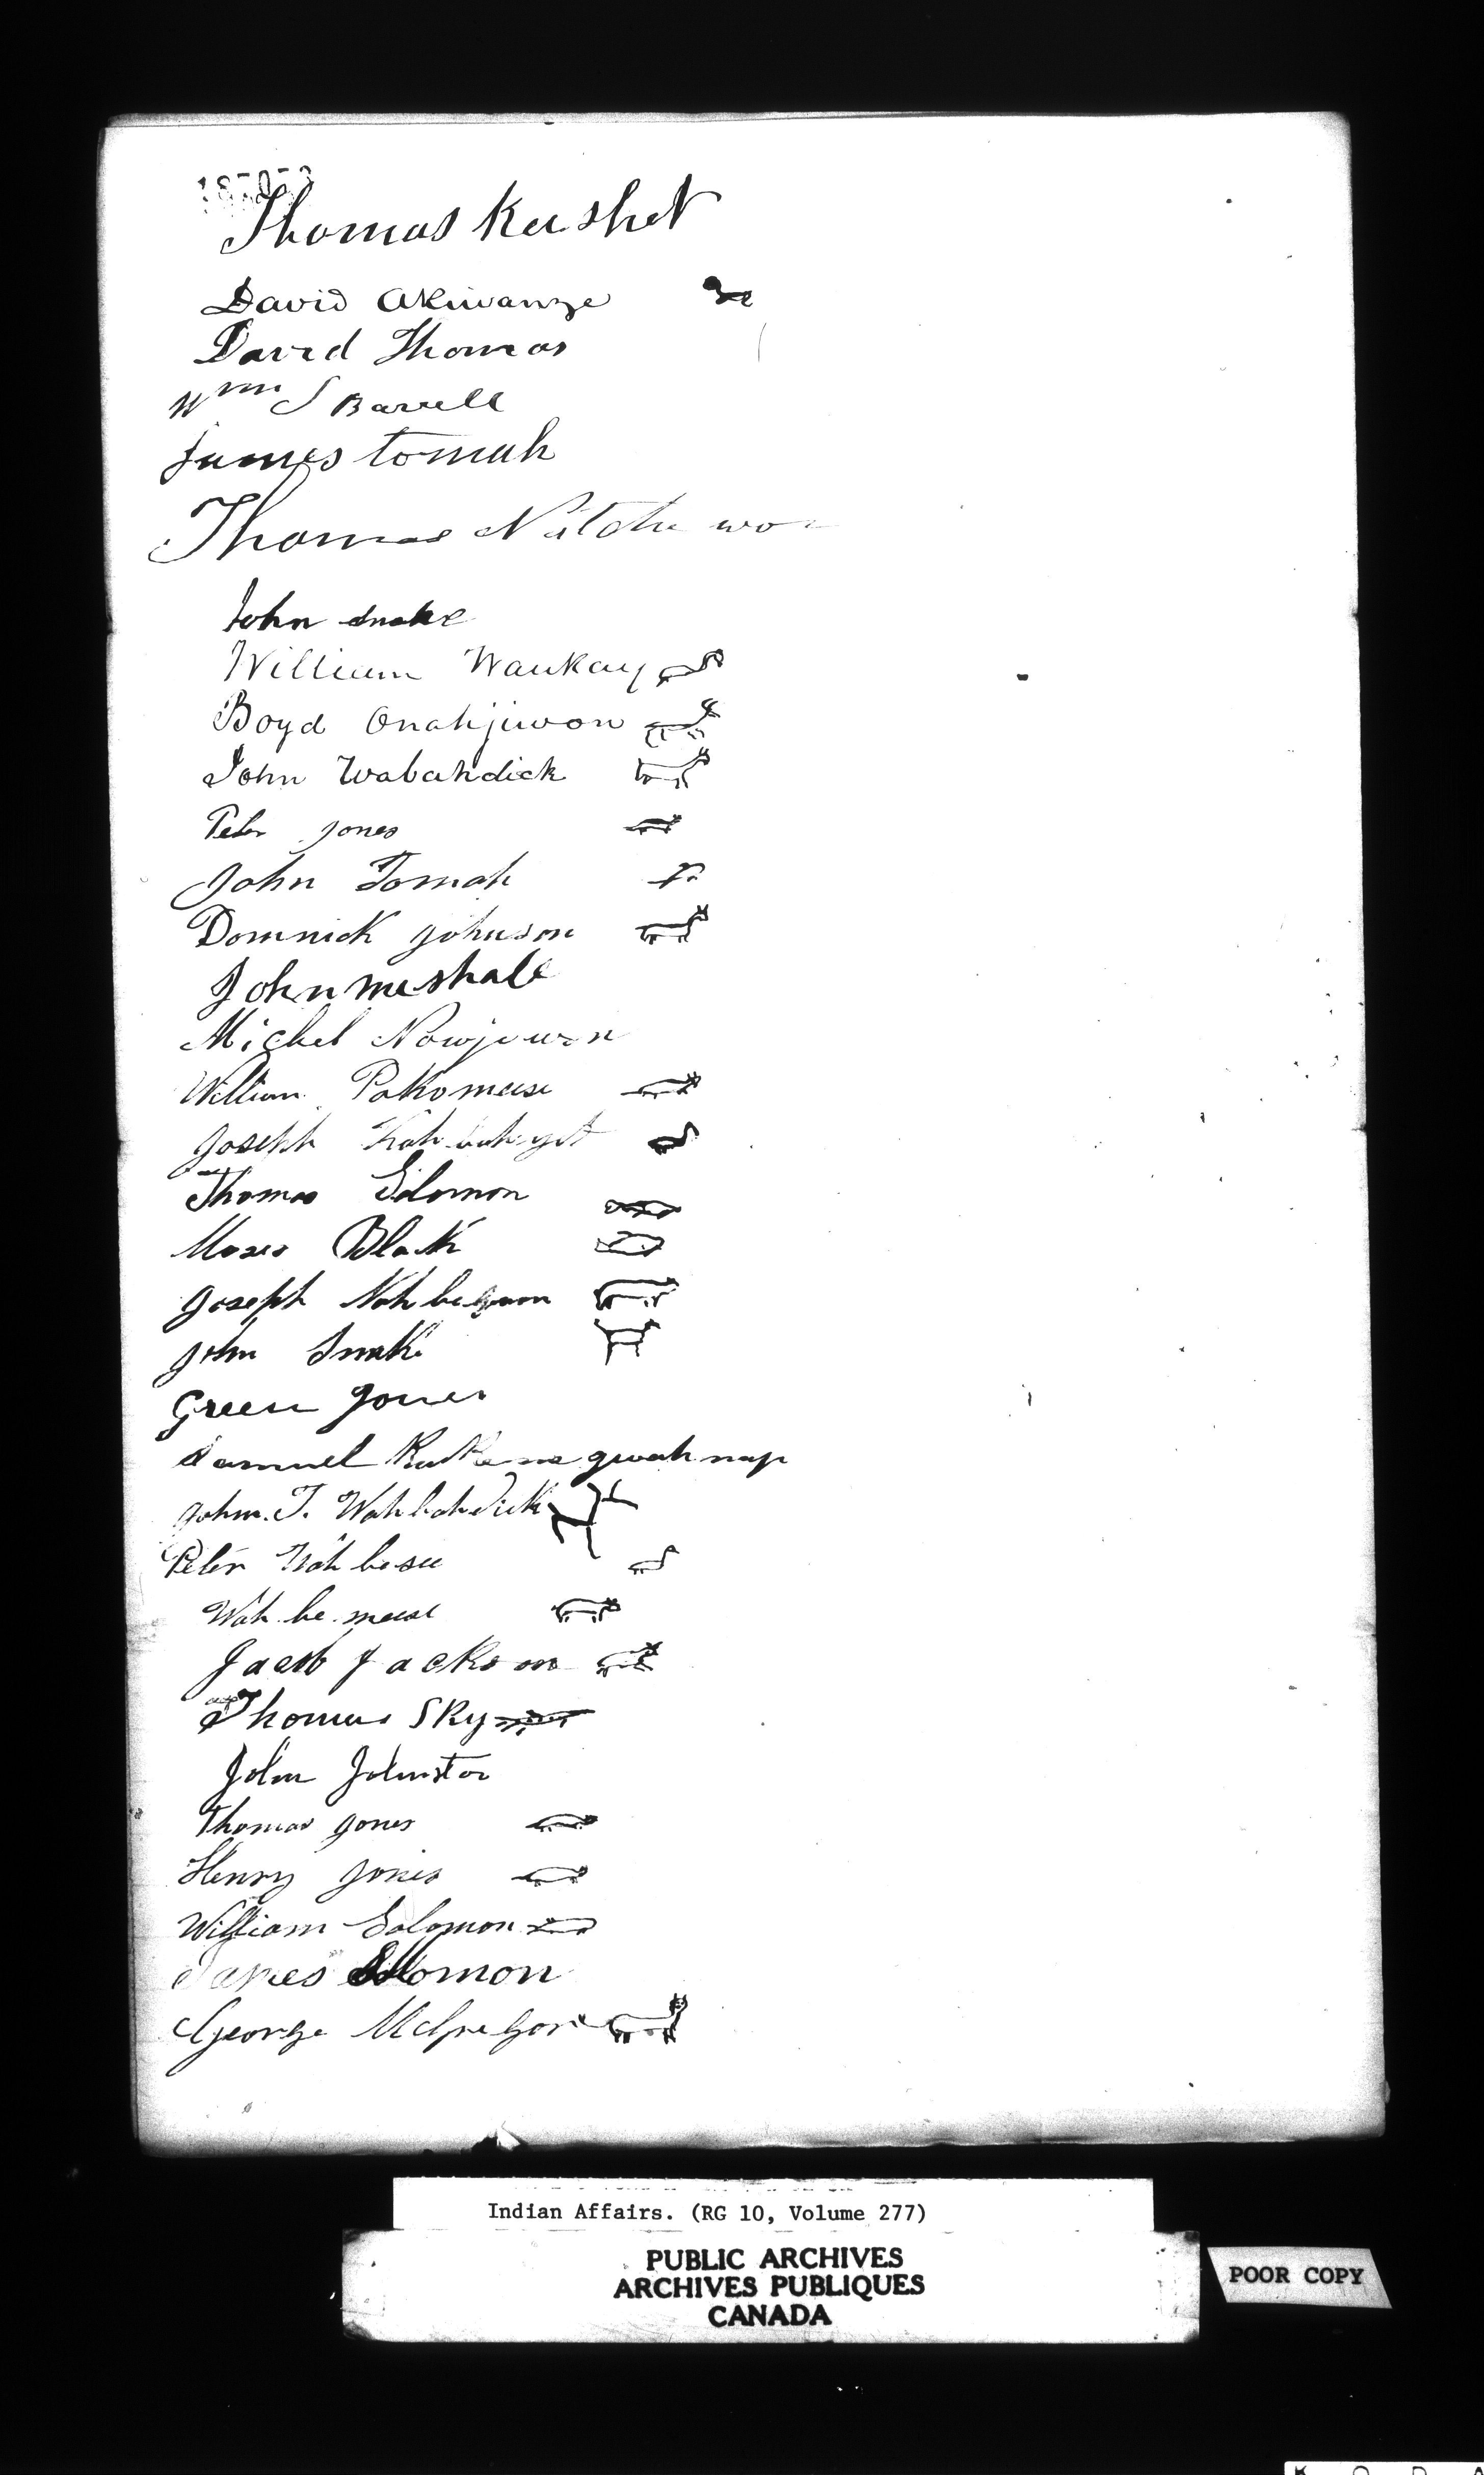 Thomas Keeshek
David Akiwanze
David Thomas
Wm S Barrell
James tomah
Thomas
John Snake
William Waukay
Boyd Onahjiwon
John Wabahdick
Peter Jones
John Tomah
Domnick Johnson
John meshale
Michel
William Pakomeese
Joseph
Thomas Solomon
Moses Black
Joseph Nahbegoon
John Snake
Green Jones
Samuel
John. T. Wahbahdick
Peter Wahbesee
Wah.be.meese
Jacob Jackson
Thomas Sky
John Johnston
Thomas Jones
Henry Jones
William Solomon
James Solomon
George McGregor
Indian Affairs. (RG 10, Volume 277)
PUBLIC ARCHIVES
ARCHIVES PUBLIQUES
CANADA
POOR COPY